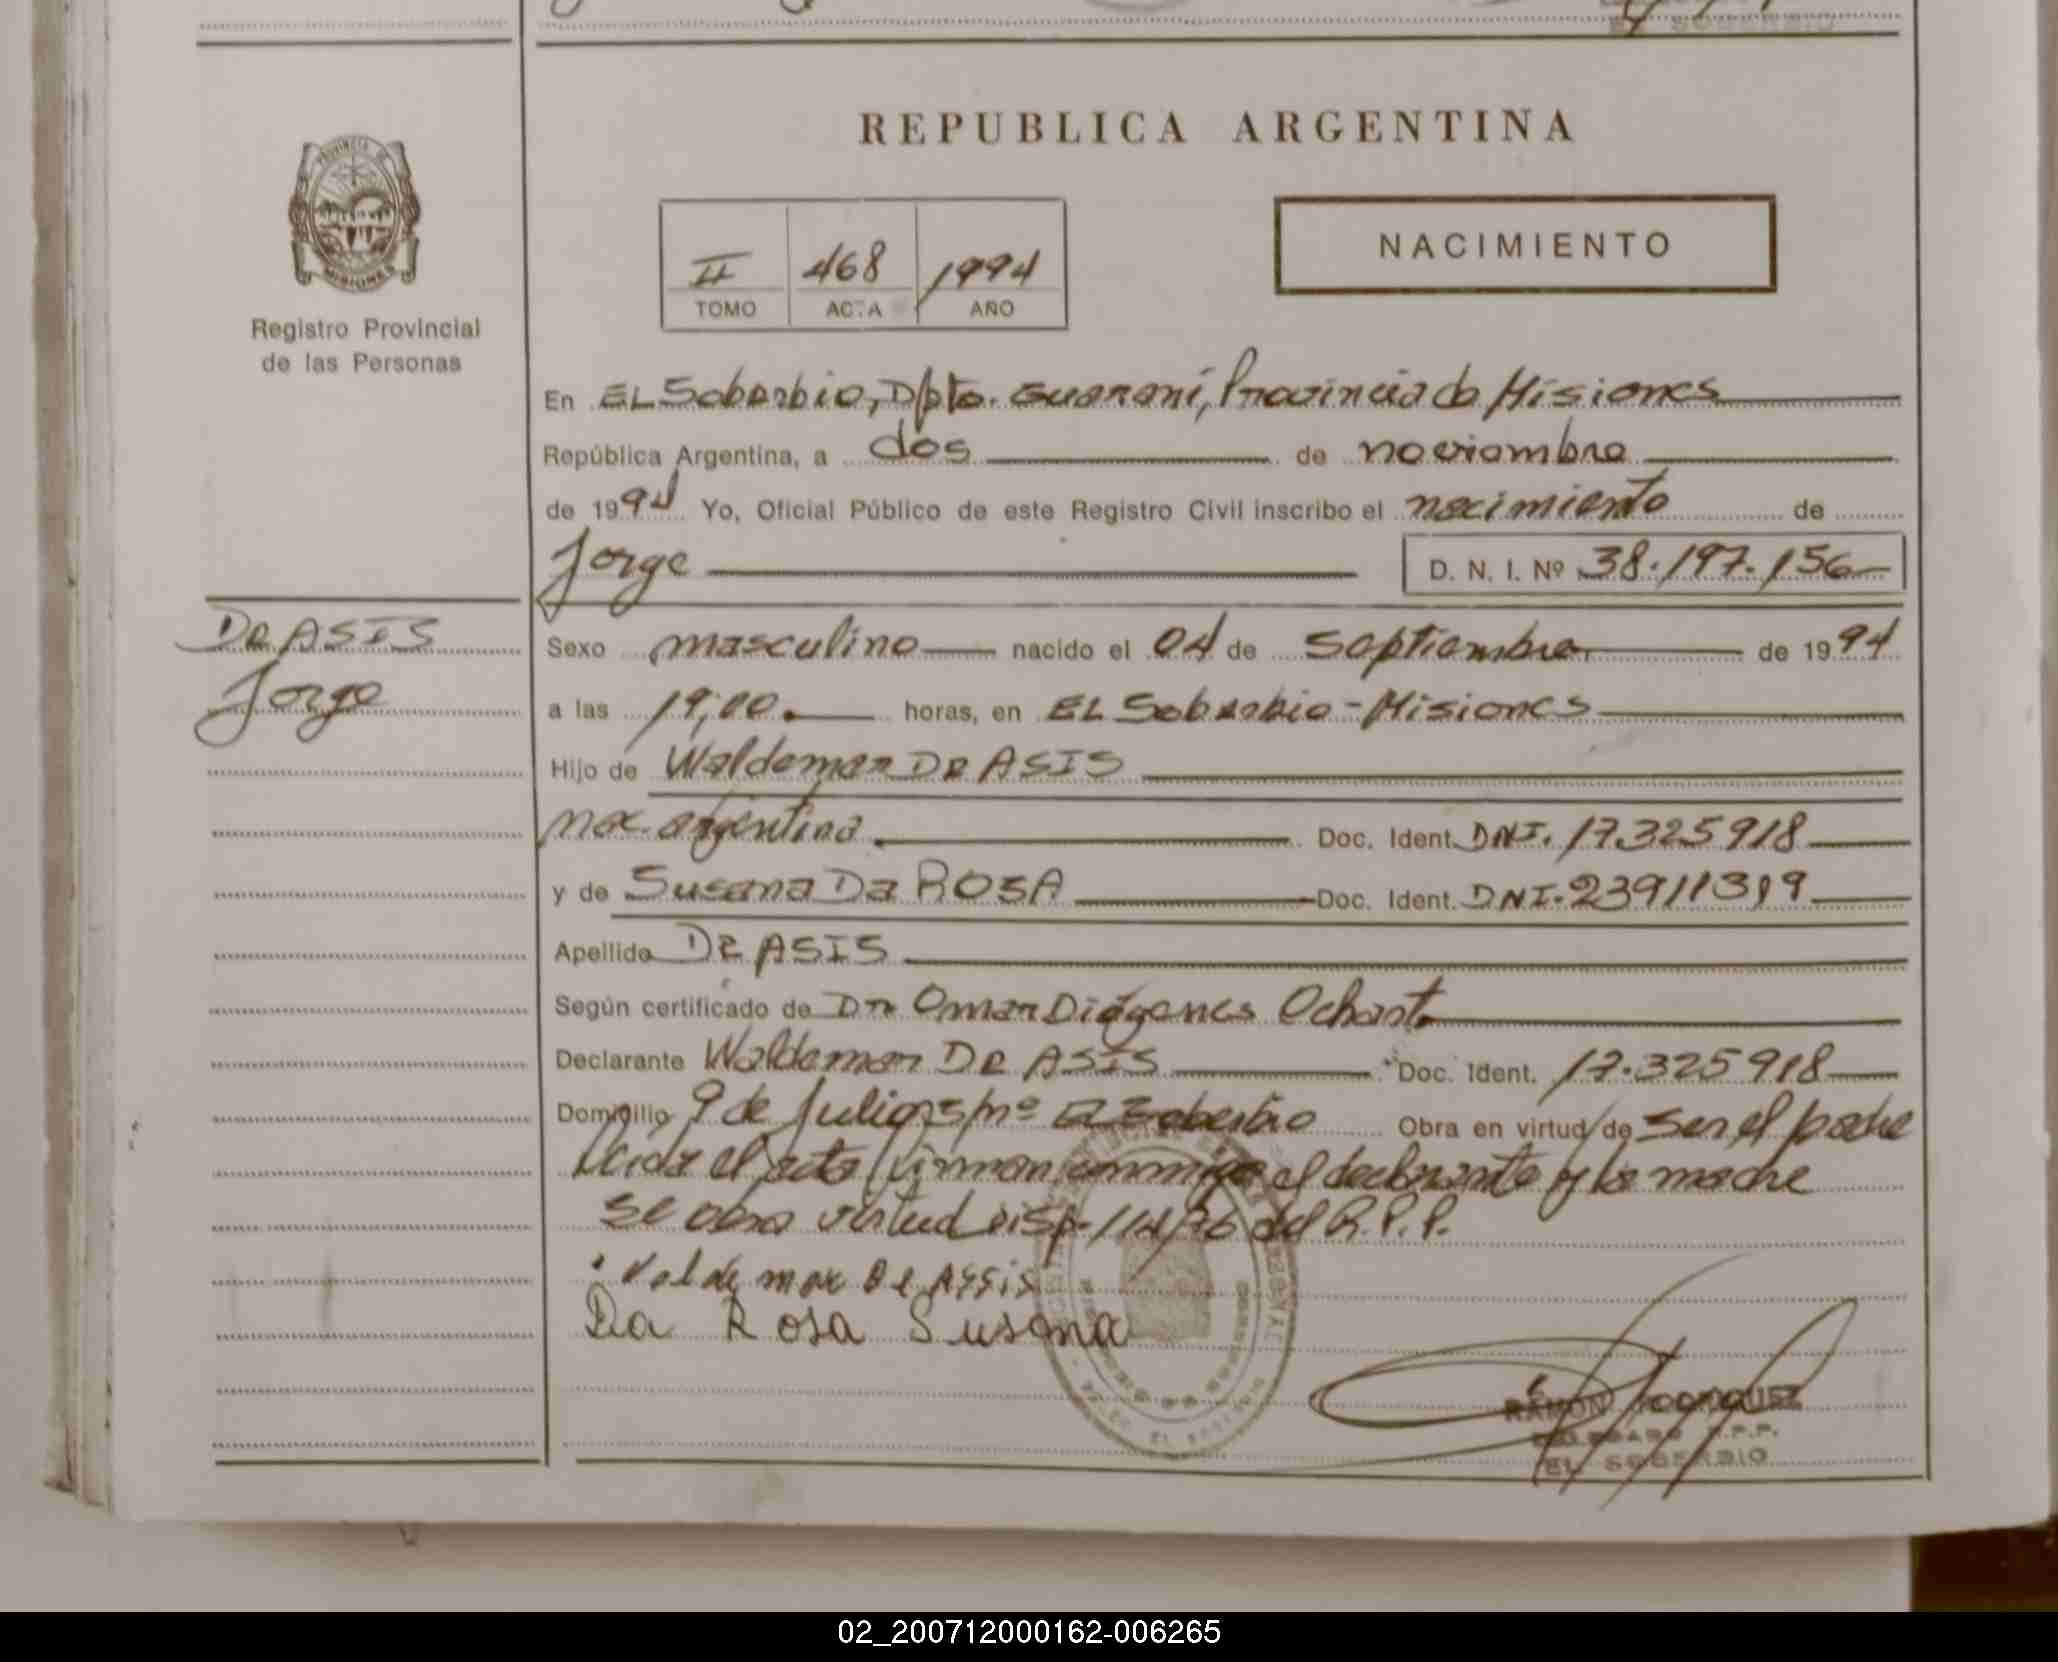 REPUBLICA ARGENTINA
PROVINCIA DE
MISIONES
Registro Provincial
de las Personas
II 468 1994
TOMO ACTA AÑO
NACIMIENTO
En EL Soberbio, Dpto. Guaraní, Provincia de Misiones
República Argentina, a dos de noviembre
de 1994 Yo, Oficial Público de este Registro Civil inscribo el nacimiento de
Jorge D. N. I. Nº 38.197.156
DE ASIS
Jorge
Sexo masculino nacido el 04 de septiembre de 1994
a las 19,00 horas, en EL Soberbio - Misiones
Hijo de Waldemar DE ASIS
nac. argentina Doc. Ident. DNI. 17.325918
y de Susana Da ROSA Doc. Ident. DNI. 23911319
Apellido DE ASIS
Según certificado de Dr Omar Diógenes Ochart
Declarante Waldemar DE ASIS Doc. Ident. 17.325918
Domicilio 9 de Julio s/nº El Soberbio Obra en virtud de ser el padre
Leída el acta firman conmigo el declarante y la madre
se obra virtud Disp. 114/76 del R.P.P.
Valdemar De Assis
Da Rosa Susana
RAMON RODRIGUEZ
R.P.P.
EL SOBERBIO
02_200712000162-006265